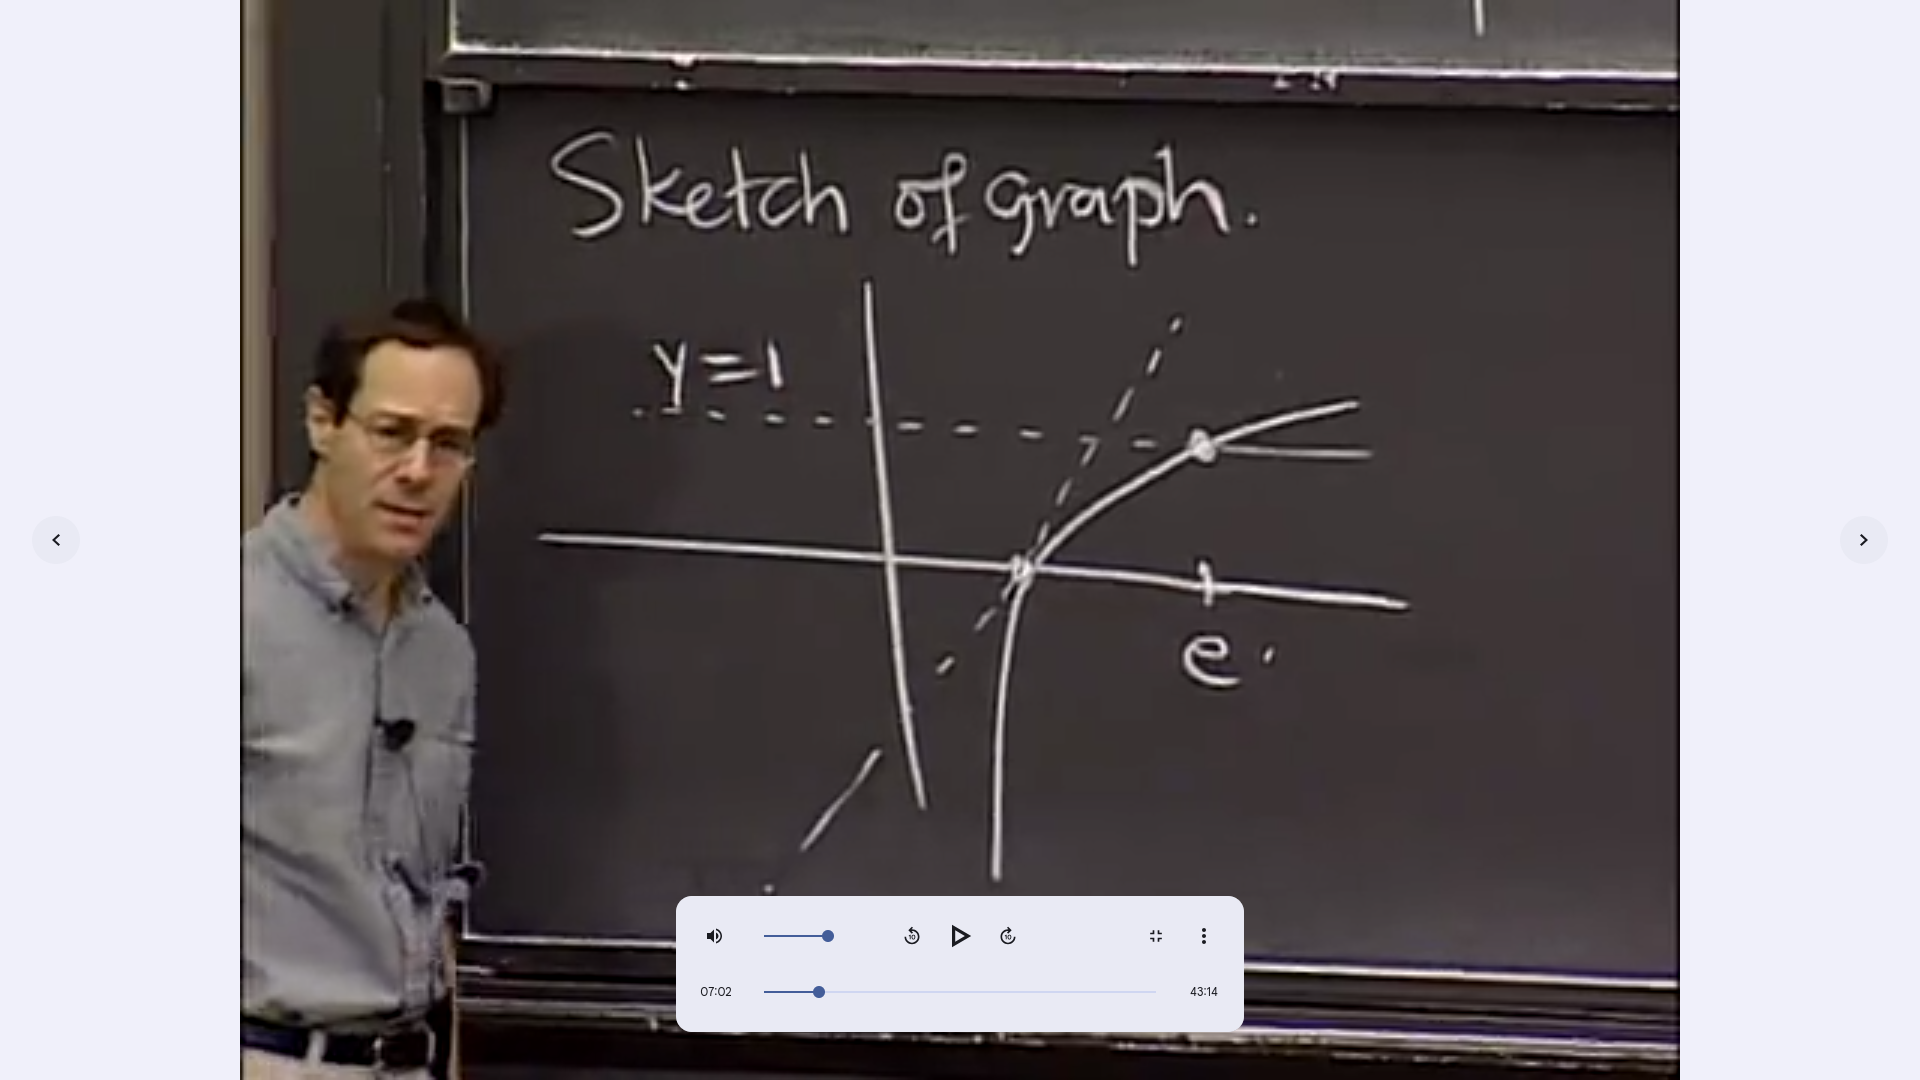 Sketch of graph.
y=1
e
07:02
43:14